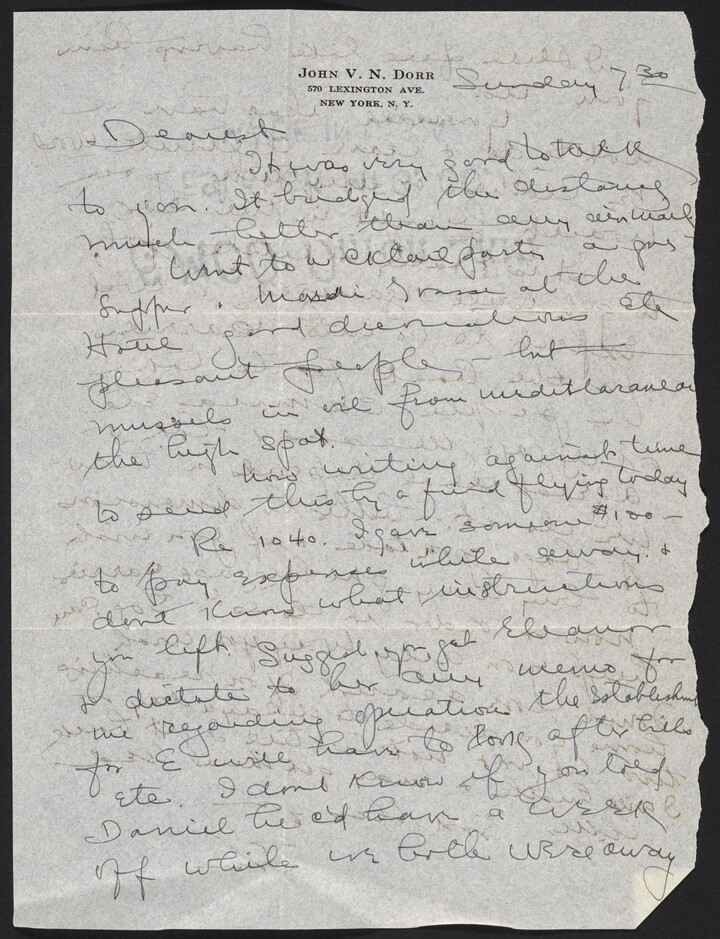 John V. N. Dorr
570 Lexington Ave.
New York, N. Y.
Sunday 7 30
Dearest
It was very good to talk
to you. It bridged the distance
much better than any airmail
Went to a cktail party a
supper & Mardi Grass at the
Hotel good decorations etc
pleasant people - but
mussels in oil from mediteranean
the high spot.
Now writing against time
to send this by a friend flying today
Re 1040. I gave someone $100 -
to pay expenses while away. &
dont know what instructions
you left. Suggest you get Eleanor
& dictate to her any memo for
me regarding operation the establishm
for E will have to look after bills
Etc. I dont know if you told
Daniel he c'd have a week
off while we both were away